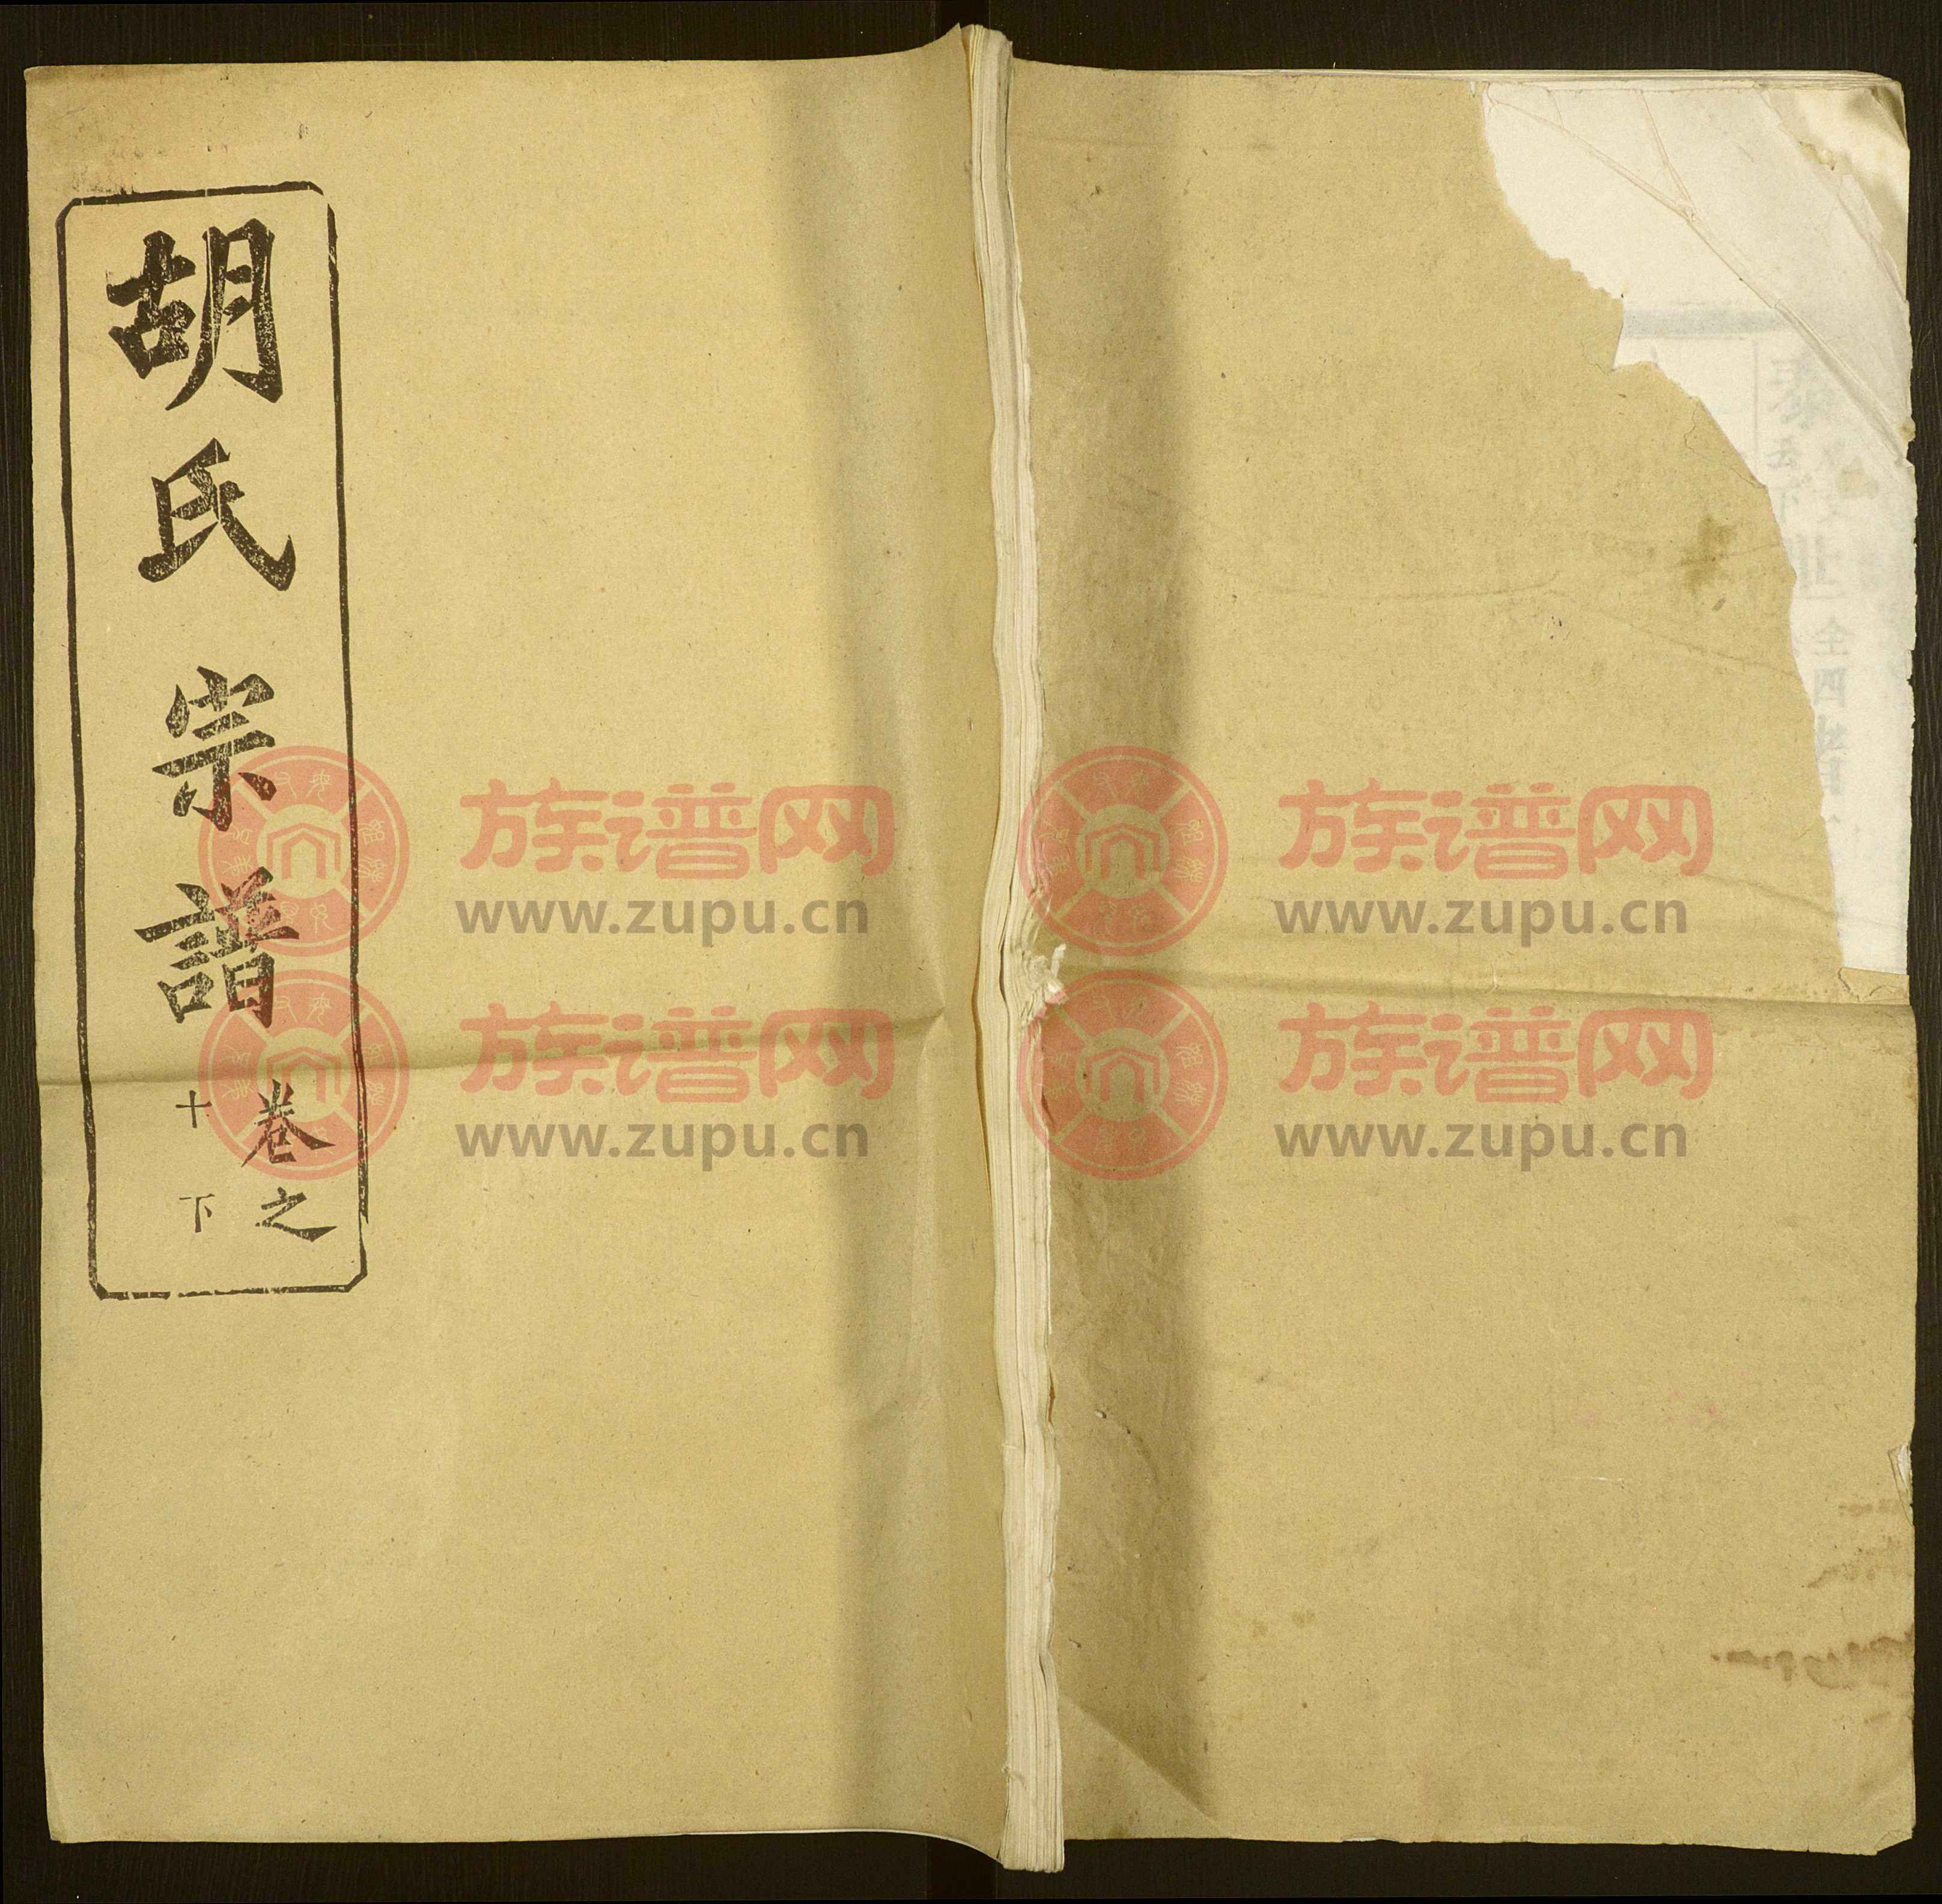 胡氏宗譜
卷之
十下
族谱网
www.zupu.cn
族谱网
www.zupu.cn
族谱网
www.zupu.cn
族谱网
www.zupu.cn
全四